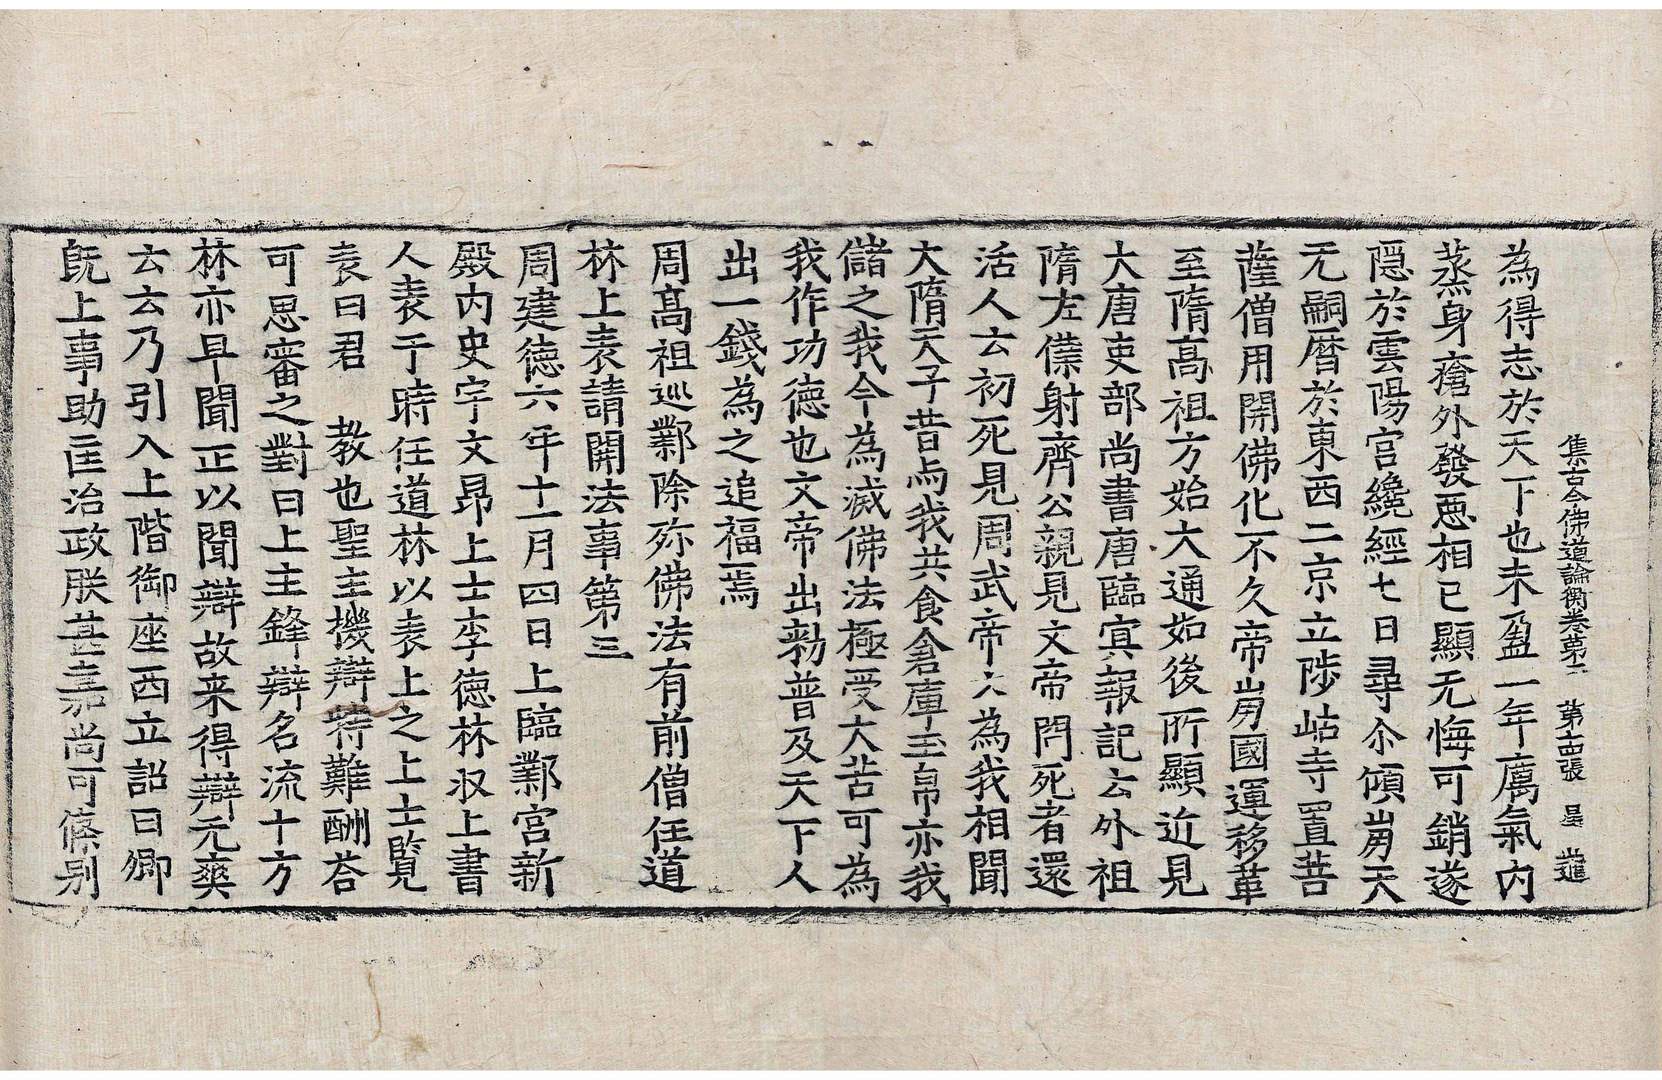 集古今佛道論衡卷第二 第十四張 星 進
為得志於天下也未盈一年癘氣內
蒸身瘡外發惡相已顯无悔可銷遂
隱於雲陽宮纔經七日尋尒傾崩天
无嗣曆於東西二京立陟岵寺置菩
薩僧用開佛化不久帝崩國運移革
至隋髙祖方始大通如後所顯近見
大唐吏部尚書唐臨冥報記云外祖
隋左僕射齊公親見文帝問死者還
活人云初死見周武帝云為我相聞
大隋天子昔与我共食倉庫玉帛亦我
儲之我今為滅佛法極受大苦可為
我作功德也文帝出勑普及天下人
出一錢為之追福焉
周髙祖巡鄴除殄佛法有前僧任道
林上表請開法事第三
周建德六年十一月四日上臨鄴宮新
殿內史宇文昂上士李德林収上書
人表于時任道林以表上之上士覽
表曰君 教也聖主機辯特難酬荅
可思審之對曰上主鋒辯名流十方
林亦早聞正以聞辯故来得辯无爽
云云乃引入上階御座西立詔曰卿
旣上事助匡治政朕甚嘉尚可條别